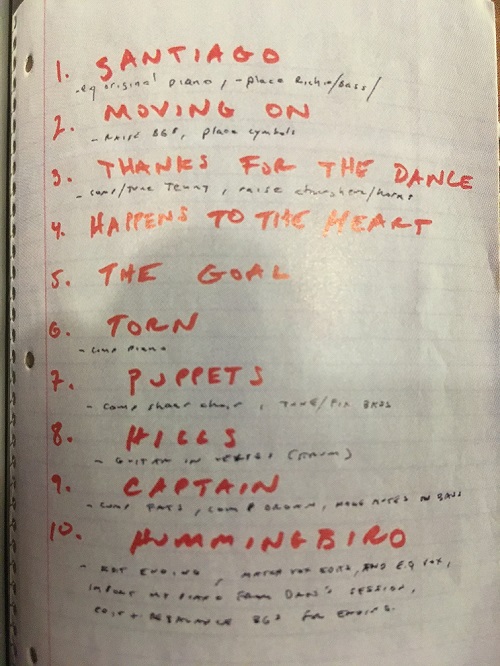 1. SANTIAGO
- eq original piano, - place Richie/bass/
2. MOVING ON
- RAISE BG's, place cymbols
3. THANKS FOR THE DANCE
- comp/tune Jenny, raise atmosphere/horns
4. HAPPENS TO THE HEART
5. THE GOAL
6. TORN
- comp piano
7. PUPPETS
- comp shaar choir, TUNE/FIX BASS
8. HILLS
- GUITAR IN VERSES
9. CAPTAIN
- comp, comp DRUMS, NOTES IN BASS
10. HUMMINGBIRD
- KEY ENDING, MATCH VOX EDITS, AND EQ VOX,
IMPORT MY PIANO FROM DAN'S SESSION,
EDIT + REBALANCE BGS FOR ENDING.